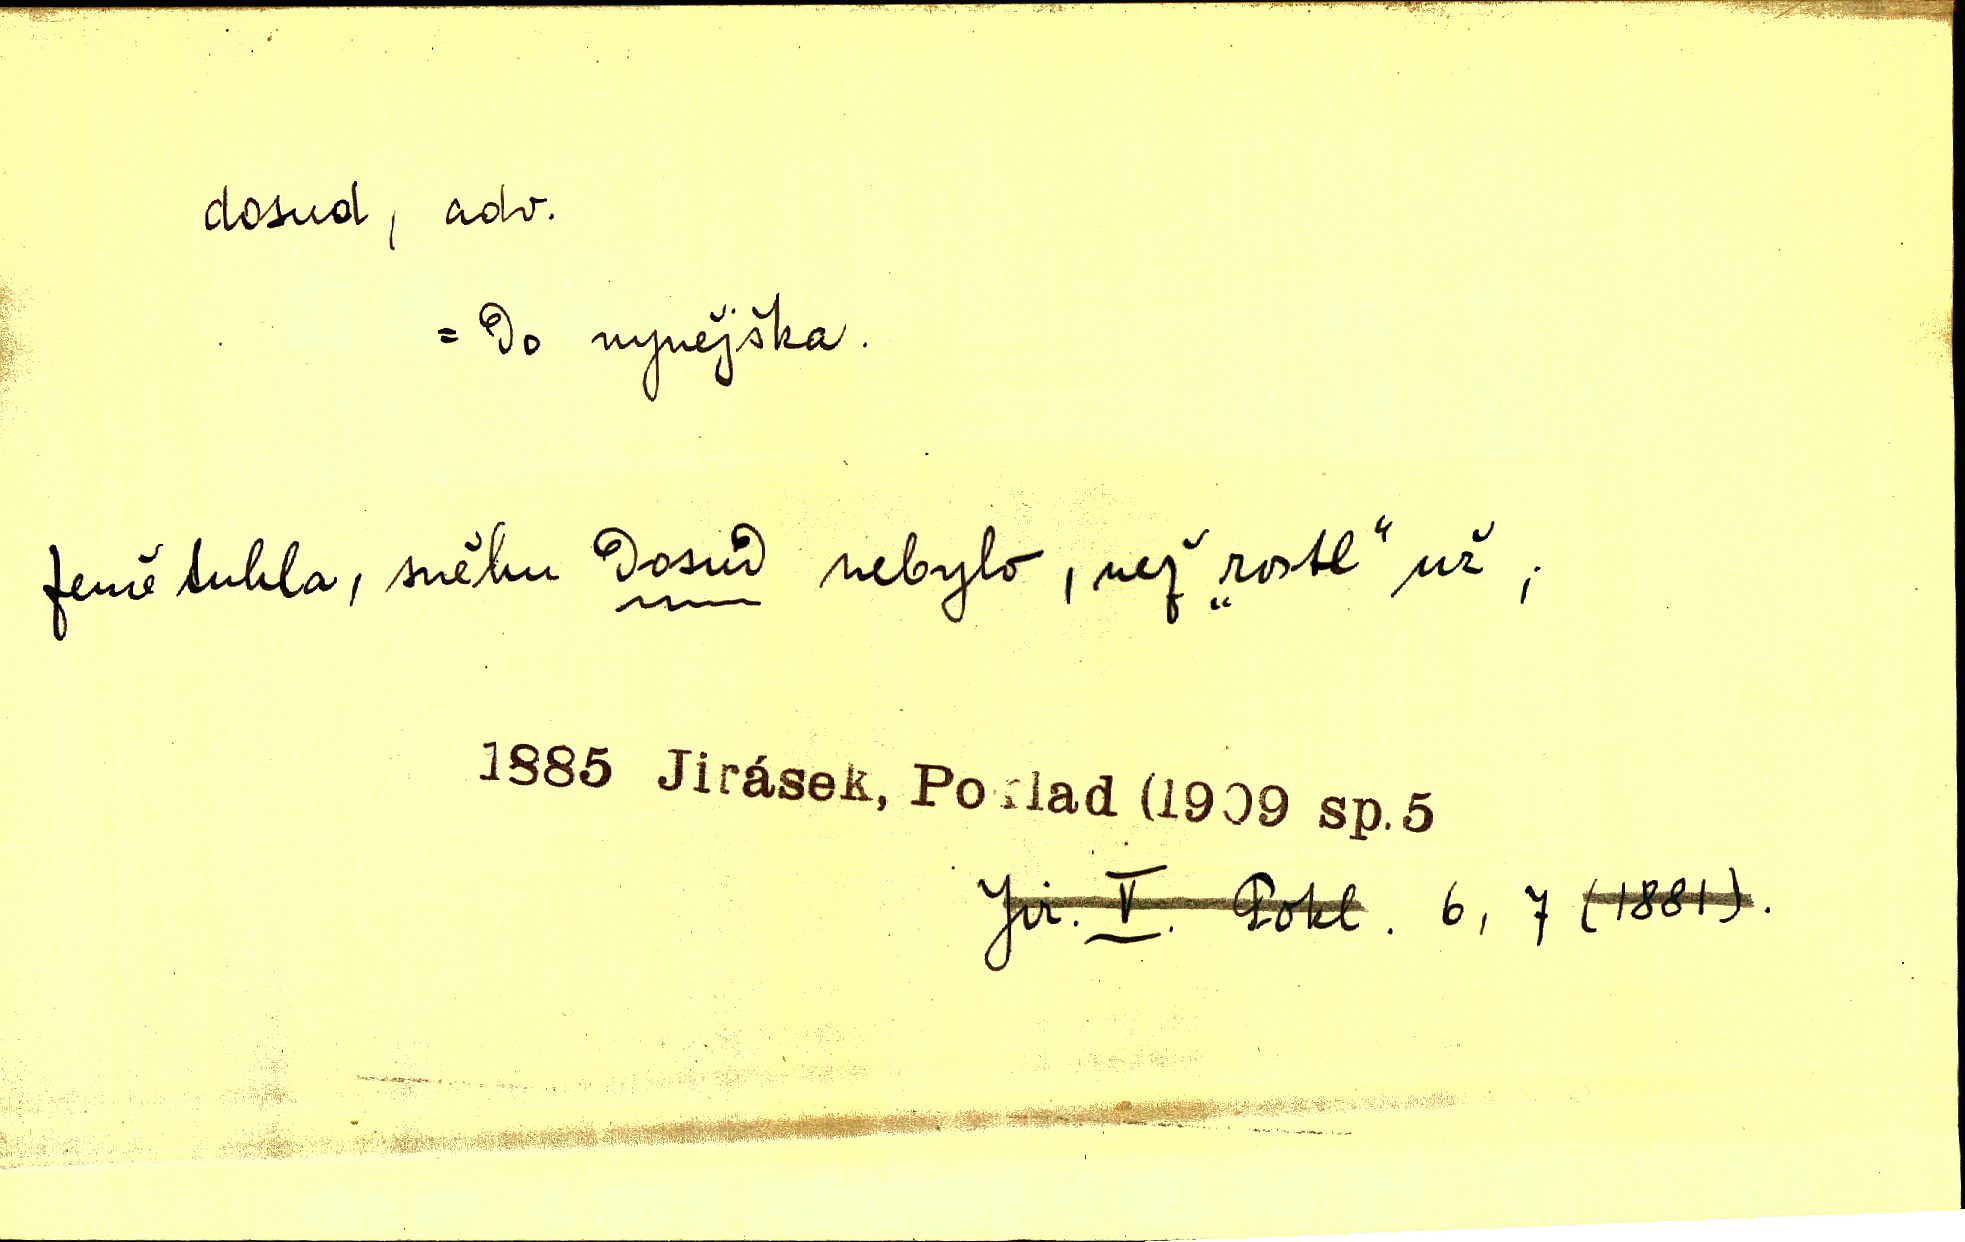 dosud, adv.
= Do nynějška.
země tuhla, sněhu dosud nebylo, než „rostl“ už;
1885 Jirásek, Poklad (1909 sp.5
Jir. V. Pokl. 6, 7 (1881).